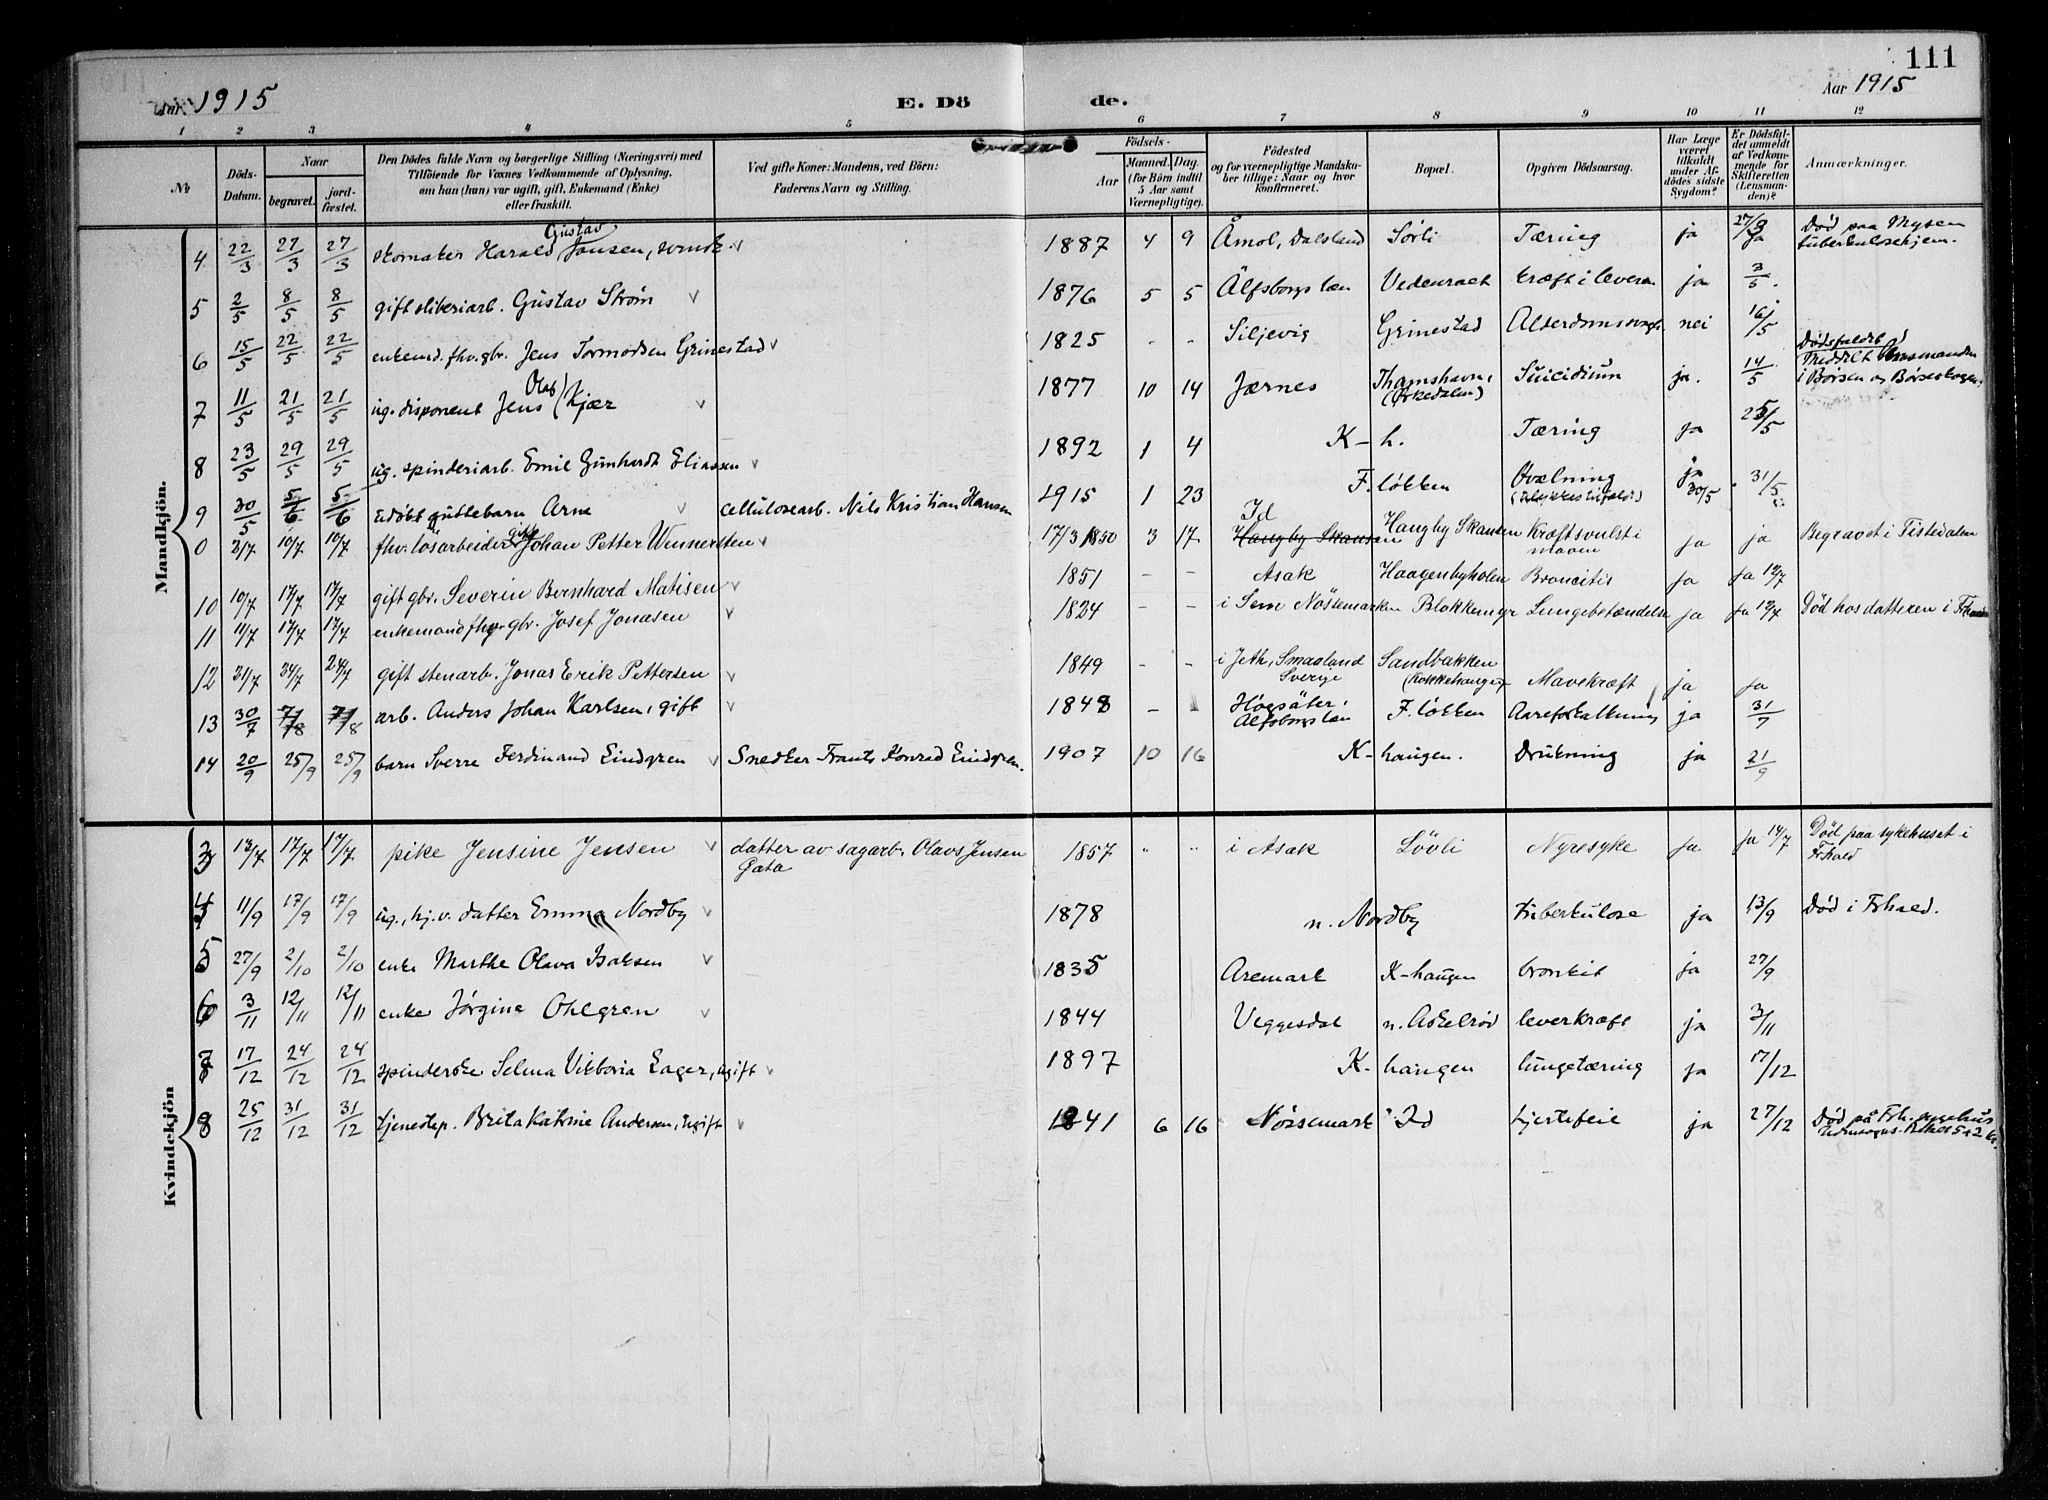 111
Aar 1915
E. Dö de.
Aar 1915
1 2 3 4 5 6 7 8 9 10 11 12
No
Döds-Datum.
Naar
begravet.
jord-fæstet.
Den Dödes fulde Navn og borgerlige Stilling (Næringsvei) med
Tilföiende for Voxnes Vedkommende af Oplysning,
om han (hun) var ugift, gift, Enkemand (Enke)
eller fraskilt.
Ved gifte Koner: Mandens, ved Börn:
Faderens Navn og Stilling.
Födsels-
Aar
Maaned. Dag.
(for Börn indtil
5 Aar samt
Værnepligtige).
Födested
og for værnepligtige Mandska-
ber tillige: Naar og hvor
konfirmeret.
Bopæl.
Opgiven Dödsaarsag.
Har Læge
været
tilkaldt
under Af-
dödes sidste
Sygdom?
Er Dödsfal-
det anmeldt
af Vedkom-
mende for
Skifteretten
(Lensman-
den)?
Anmærkninger.
Mandkjön.
4 22/3 27/3 27/3 skomaker Harald Gustav Jansen, 1887 4 9 Åmol, Dalsland Sörli Tæring ja 27/3 ja Död paa Mysen tuberkulosehjem.
5 2/5 8/5 8/5 gift sliberiarb. Gustav Ström 1876 5 5 Älfsborgs læn Vedenraet kræft i leveren ja 3/5
6 15/5 22/5 22/5 enkemd. fhv. gbr. Jens Tormodsen Grinestad 1825 - - Siljevig Grinestad nei 16/5
7 11/5 21/5 21/5 ug. disponent Jens Olaf Kjær 1877 10 14 Jærnes Thamshavn, (Orkedalen) Suicidium ja. 14/5 Dödsfaldet meddelt lensmanden i Börsen og Börseskogen.
8 23/5 29/5 29/5 ug. spinderiarb. Emil Gunhardt Eliassen 1892 1 4 K-h. Tæring ja 25/5
9 30/5 5/6 5/6 udöbt guttebarn Arne cellulosearb. Nils Kristian Hansen 1915 1 23 F. lökken Kvælning (Ulykkestilfælde) ja 30/5 31/5
0 2/7 10/7 10/7 fhv. lösarbeider gift Johan Petter Wennersten 17/3 1850 3 17 Id Haugby Skansen Haugby Skansen Kræftsvulst i maven ja ja Begravet i Tistedalen
10 10/7 17/7 17/7 gift gbr. Severin Bernhard Matisen 1851 - - Asak Haagenbyholen Broncitis ja ja 12/7
11 11/7 17/7 17/7 enkemand fhv. gbr. Josef Jonasen 1824 - - i Sem Nössemarken Blokkemyr Lungebetændelse ja ja 12/7 Död hos datteren i Frhald
12 31/7 24/7 gift stenarb. Jonas Erik Pettersen 1849 - - i Jeth, Smaaland Sverige Sandbakken (Kokkehaugen) Mavekræft ja ja
13 30/7 7/8 7/8 arb. Anders Johan Karlsen, gift 1848 - Högsäter, Älfsborgs læn F. lökken Aareforkalkning ja 31/7
14 20/9 25/9 25/9 barn Sverre Ferdinand Lindgren Snedker Frants Konrad Lindgren. 1907 10 16 K-haugen. Drukning ja 21/9
Kvindekjön
3 13/7 17/7 17/7 pike Jensine Jensen datter av sagarb. Olavs Jensen Gata 1857 " " i Asak Lövli Nyresyke ja ja 14/7 Död paa sykehuset i Frhald
4 11/9 17/9 17/9 ug., hj. v. datter Emma Nordby 1878 n. Nordby Tuberkulose ja 13/9 Död i Frhald.
5 27/9 2/10 2/10 enke Marthe Olava Isaksen 1835 Aremark K-haugen bronkit ja 27/9
6 3/11 12/11 12/11 enke Jörgine Ohlgren 1844 Veggesdal n. Askelröd leverkræft ja 3/11
7 17/12 24/12 24/12 spinderske Selma Viktoria Lager, ugift 1897 K-haugen lungetæring ja 17/12
8 25/12 31/12 31/12 tjenestep. Brita Katrine Andersen, ugift 1841 6 16 Nössemark Id hjertefeil ja 27/12 Död på Frh.